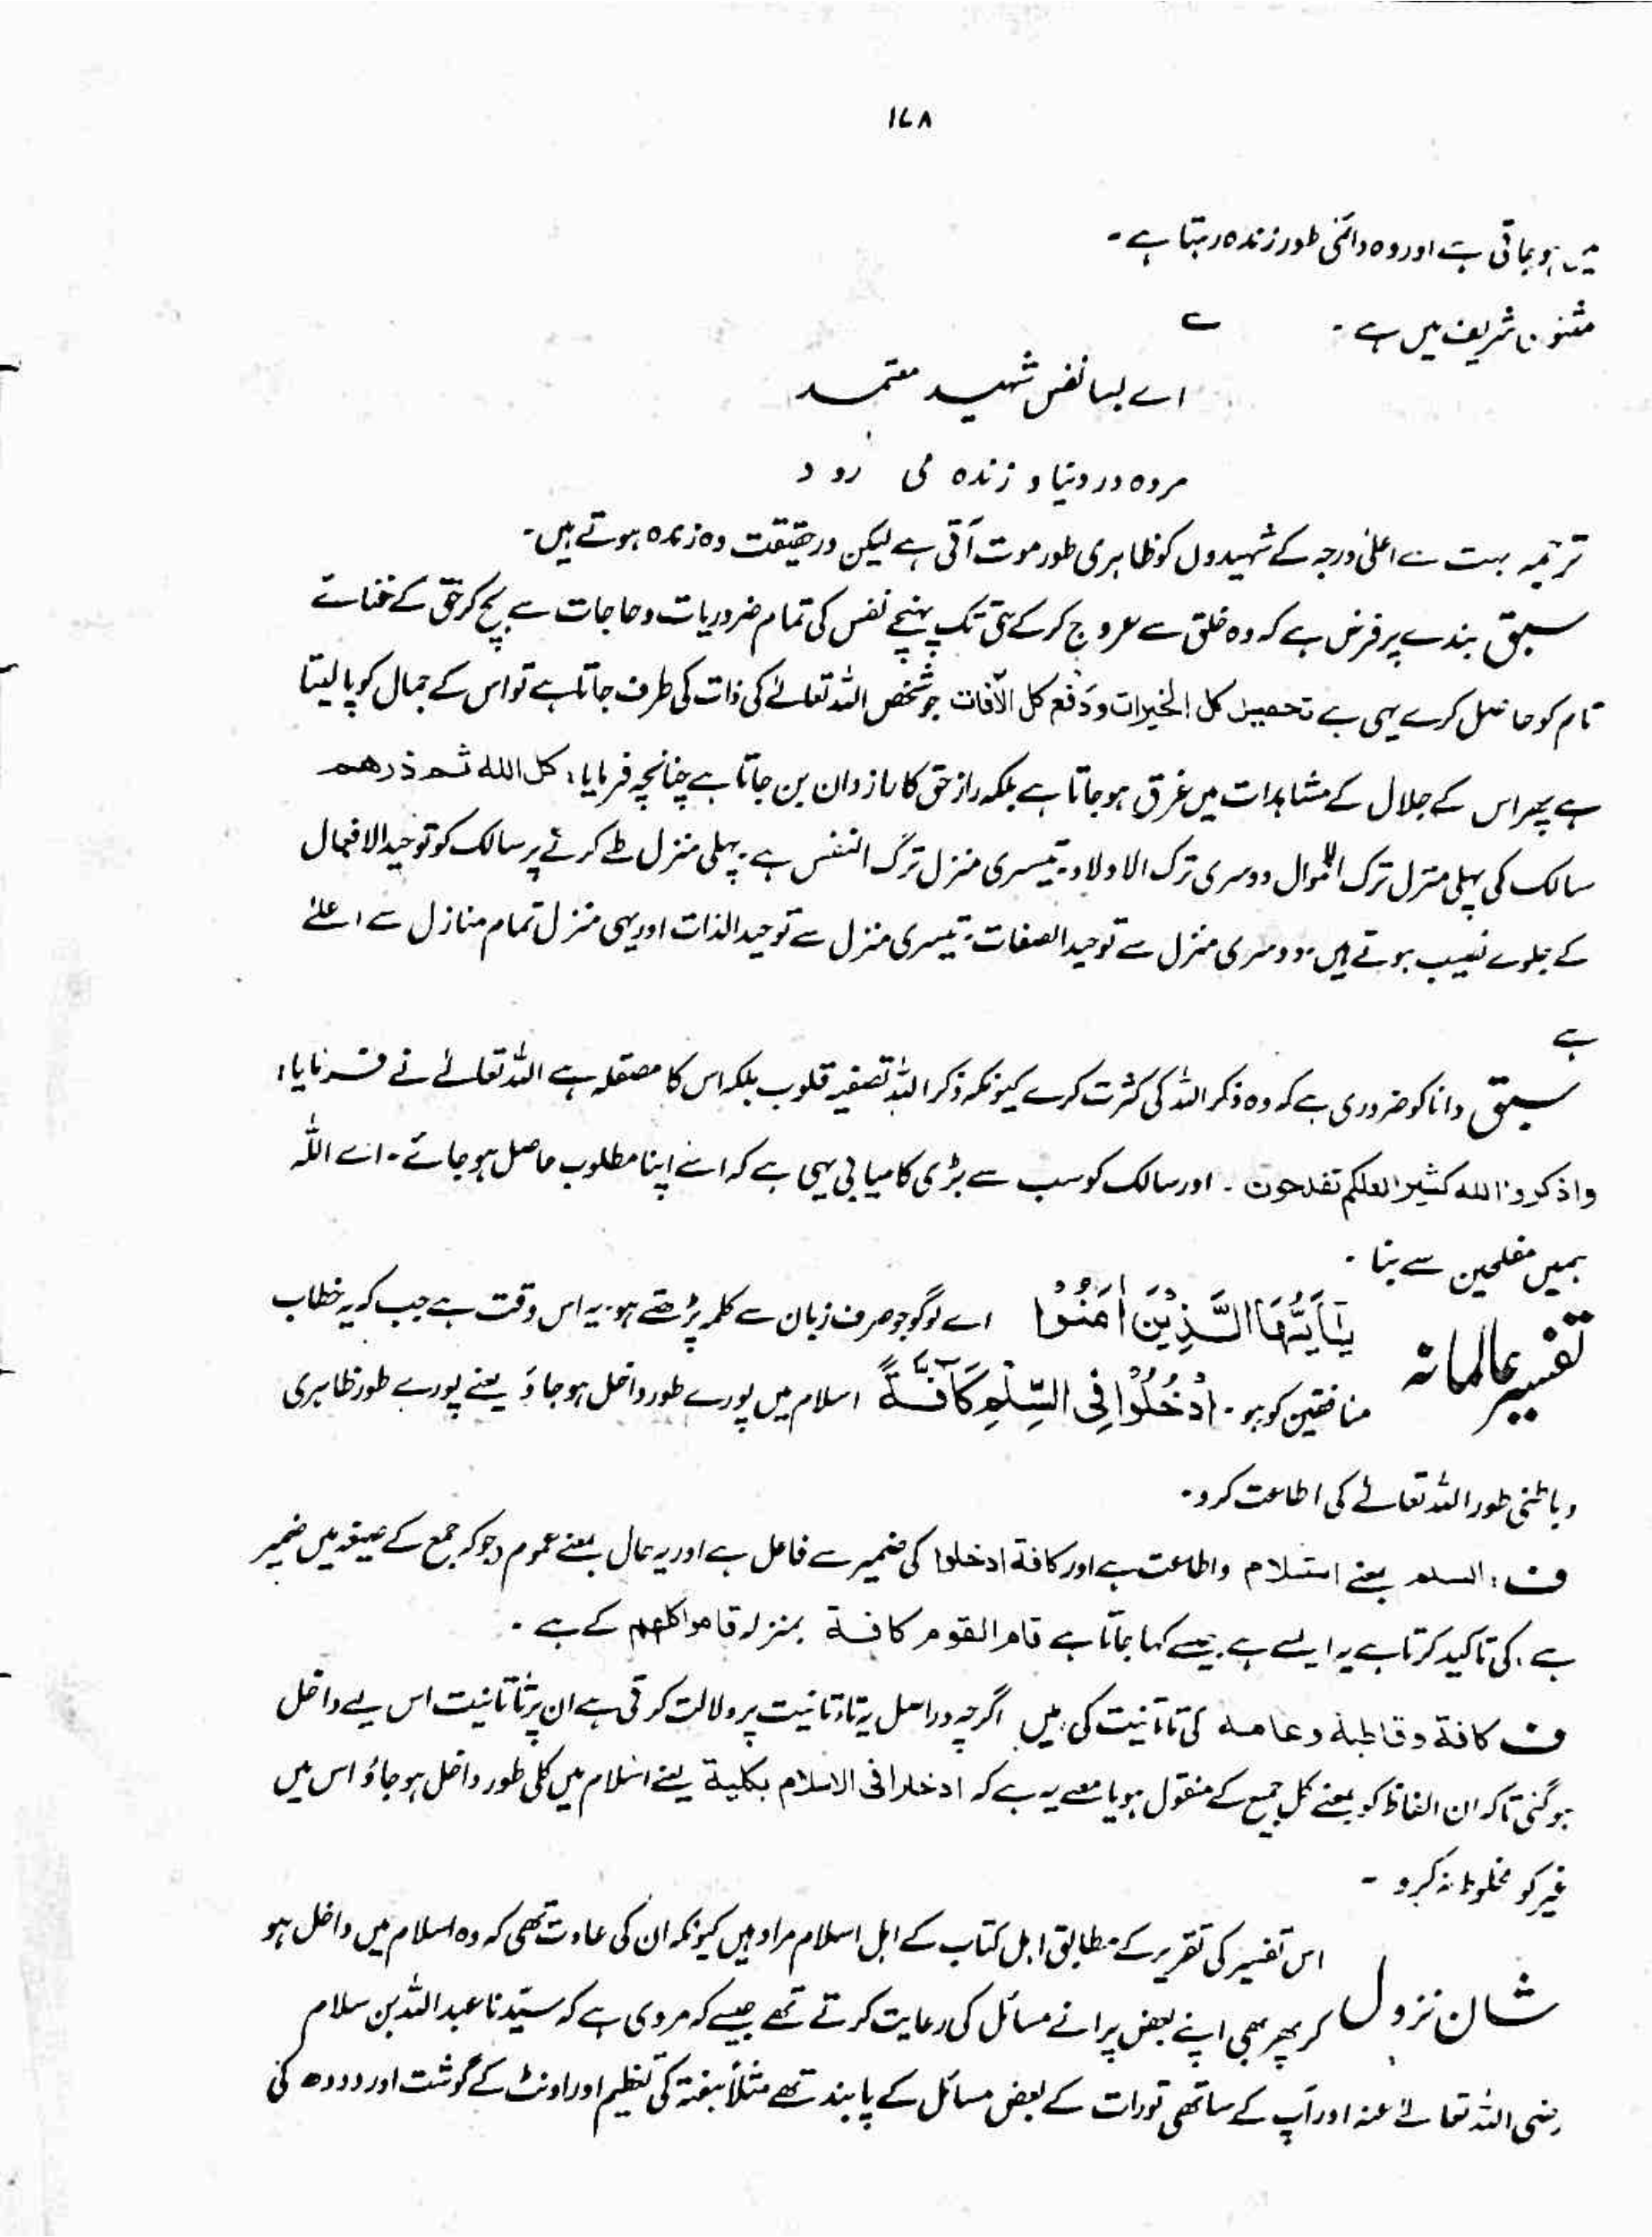 ۱۷۸
میں ہو جاتی ہے اور وہ دائمی طور زندہ رہتا ہے۔
مثنوی شریف میں ہے۔ ے
اے بسا نفس شہید معتمد
مردہ در دنیا و زندہ می رود
ترجمہ بہت سے اعلیٰ درجہ کے شہیدوں کو ظاہری طور موت آتی ہے لیکن درحقیقت وہ زندہ ہوتے ہیں۔
سبق بندے پر فرض ہے کہ وہ خلق سے عروج کر کے حق تک پہنچے نفس کی تمام ضروریات و حاجات سے بچ کر حق کے غنائے
تام کو حاصل کرے یہی ہے تحصیل کل الخیرات و دفع کل الآفات جو شخص اللہ تعالےٰ کی ذات کی طرف جاتا ہے تو اس کے جمال کو پا لیتا
ہے پھر اس کے جلال کے مشاہدات میں غرق ہو جاتا ہے بلکہ راز حق کا راز دان بن جاتا ہے چنانچہ فرمایا: کل اللہ ثم ذرھم
سالک کی پہلی منزل ترک الاموال دوسری ترک الاولاد۔ تیسری منزل ترک النفس ہے۔ پہلی منزل طے کرنے پر سالک کو توحید الافعال
کے جلوے نصیب ہوتے ہیں۔ دوسری منزل سے توحید الصفات۔ تیسری منزل سے توحید الذات اور یہی منزل تمام منازل سے اعلےٰ
ہے
سبق دانا کو ضروری ہے کہ وہ ذکر اللہ کی کثرت کرے کیونکہ ذکر اللہ تصفیہ قلوب بلکہ اس کا مصقلہ ہے اللہ تعالےٰ نے فرمایا:
واذکروا اللہ کثیرا لعلکم تفلحون۔ اور سالک کو سب سے بڑی کامیابی یہی ہے کہ اسے اپنا مطلوب حاصل ہو جائے۔ اے اللہ
ہمیں مفلحین سے بنا۔
تفسیر عالمانہ یٰٓاَیُّھَا الَّذِیْنَ اٰمَنُوْا اے لوگو جو صرف زبان سے کلمہ پڑھتے ہو۔ یہ اس وقت ہے جب کہ یہ خطاب
منافقین کو ہو۔ ادْخُلُوْا فِی السِّلْمِ کَآفَّةً اسلام میں پورے طور داخل ہو جاؤ یعنے پورے طور ظاہری
و باطنی طور اللہ تعالےٰ کی اطاعت کرو۔
ف: السلم بمعنے استسلام واطاعت ہے اور کافة ادخلوا کی ضمیر سے فاعل ہے اور یہ حال بمعنے عموم (جو کہ جمع کے صیغہ میں ضمیر
ہے) کی تاکید کرتا ہے یہ ایسے ہے جیسے کہا جاتا ہے قام القوم کافة بمنزلہ قاموا کلھم کے ہے۔
ف کافة وقاطبة وعامة کی تا تانیت کی ہیں اگرچہ دراصل یہ تاء تانیت پر دلالت کرتی ہے ان پر تا تانیت اس لیے داخل
ہو گئی تاکہ ان الفاظ کو بمعنے کل جمیع کے منقول ہو یا معنے یہ ہے کہ ادخلوا فی الاسلام بکلیة یعنے اسلام میں کلی طور داخل ہو جاؤ اس میں
غیر کو مخلوط نہ کرو۔
شان نزول اس تفسیر کی تقریر کے مطابق اہل کتاب کے اہل اسلام مراد ہیں کیونکہ ان کی عادت تھی کہ وہ اسلام میں داخل ہو
کر پھر بھی اپنے بعض پرانے مسائل کی رعایت کرتے تھے جیسے کہ مروی ہے کہ سیّدنا عبداللہ بن سلام
رضی اللہ تعالےٰ عنہ اور آپ کے ساتھی تورات کے بعض مسائل کے پابند تھے مثلاً ہفتہ کی تعظیم اور اونٹ کے گوشت اور دودھ کی